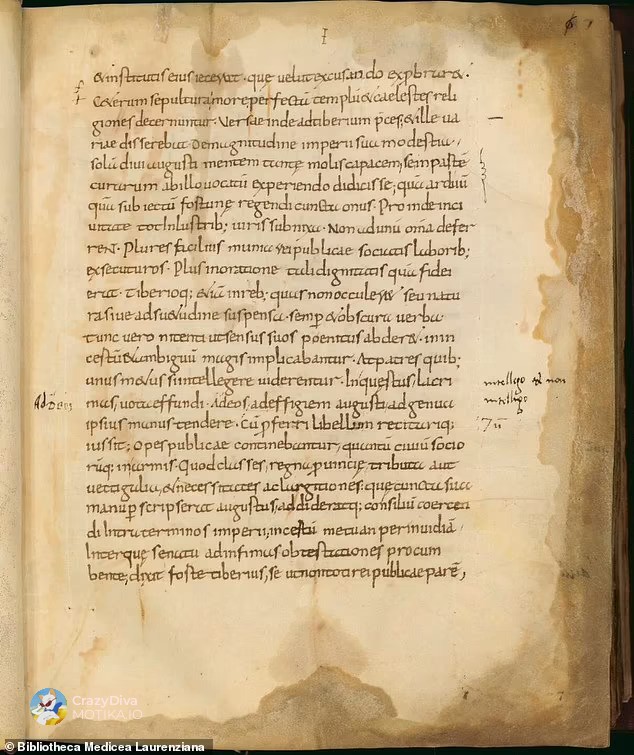 I
6
& institutis eius iecerat · quę velut excusando exprobrar& ·
Ceterum sepultura more perfectū templū & caelestes reli
giones decernuntur. Versae inde ad tiberium p̄ces; & ille va
riae disserebat De magnitudine imperii sua modestia ·
solā divi augusti mentem tantę molis capacem; se in partē
curarum ab illo vocatū experiendo didicisse; quā arduū
quā subiectū fortunę regendi cuncta onus · Proinde in ci
vitate tot inlustrib; viris subnixa · Non ad unū omīa defer
rent · Plures facilius munia rei publicae sociatis laborib;
exsecuturos · Plus in oratione tali dignitatis quā fidei
erat · Tiberioq; &iā in reb; quas non occuler& seu natu
ra sive adsu&udine suspensa · semp & obscura verba ·
tunc vero nitenti ut sensus suos poenitus abder& · in in
certū & ambiguū magis implicabantur · At patres quib;
unus metus si intellegere viderentur · In questus lacri
mas, vota effundi · Ad eos, ad effigiem augusti, ad genua
ipsius manus tendere · Cū pferri libellum recitariq;
iussit; Opes publicae continebantur, quantū civiū socio
rūq; in armis · Quod classes, regna, puincię, tributa aut
vectigalia, & necessitates ac largitiones · quę cuncta sua
manu pscripserat augustus, addideratq; consiliū coercen
di Intra terminos imperii, incertū metu an per invidiā ·
Interquę senatu ad infimas obtestationes procum
bente; dixit forte tiberius, se ut non toti rei publicae parē,
Ad Deos
intellego et non
intellego
CrazyDiva
MOTIKA.IO
© Bibliotheca Medicea Laurenziana